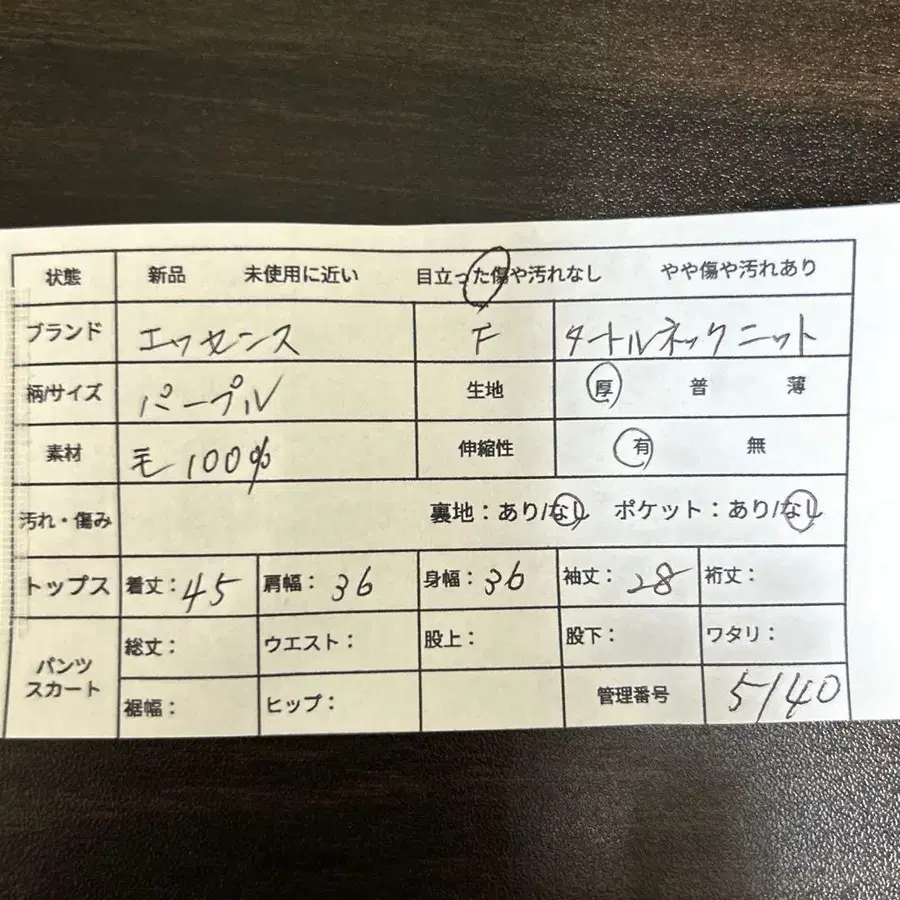 状態 新品 未使用に近い 目立った傷や汚れなし やや傷や汚れあり
ブランド エッセンス F タートルネックニット
柄/サイズ パープル 生地 厚 普 薄
素材 毛100% 伸縮性 有 無
汚れ・傷み 裏地：あり/なし ポケット：あり/なし
トップス 着丈：45 肩幅：36 身幅：36 袖丈：28 裄丈：
パンツ スカート 総丈： ウエスト： 股上： 股下： ワタリ：
裾幅： ヒップ： 管理番号 5140